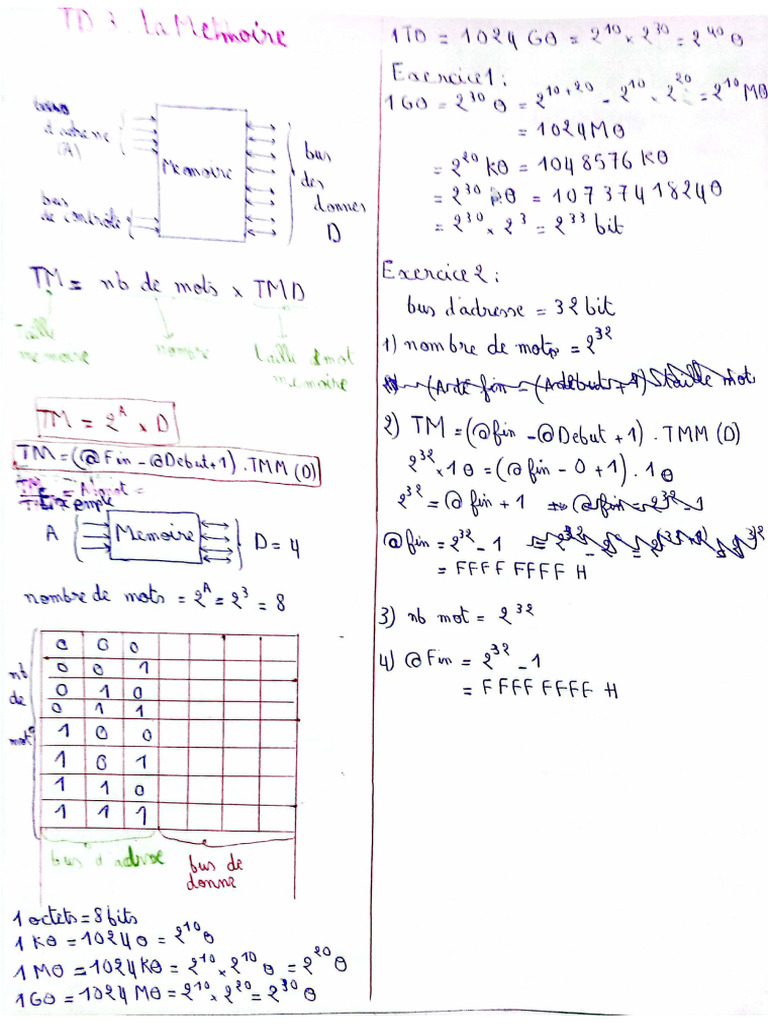 TD 3: La Memoire
bus
d'adresse
(A)
Memoire
bus
des
donnes
D
bus
de contrôle
TM = nb de mots x TMD
Taille
memoire
nombre
taille mot
memoire
TM = 2^A x D
TM = (@Fin - @Debut + 1) . TMM (D)
Exemple
A
Memoire
D = 4
nombre de mots = 2^A = 2^3 = 8
nb
de
mot
0 0 0
0 0 1
0 1 0
0 1 1
1 0 0
1 0 1
1 1 0
1 1 1
bus d'adresse
bus de
donne
1 octets = 8 bits
1 KO = 1024 O = 2^10 O
1 MO = 1024 KO = 2^10 x 2^10 O = 2^20 O
1 GO = 1024 MO = 2^10 x 2^20 = 2^30 O
1 TO = 1024 GO = 2^10 x 2^30 = 2^40 O
Exercice 1 :
1 GO = 2^30 O = 2^10+20 = 2^10 x 2^20 = 2^10 MO
= 1024 MO
= 2^20 KO = 1048576 KO
= 2^30 O = 1073741824 O
= 2^30 x 2^3 = 2^33 bit
Exercice 2 :
bus d'adresse = 32 bit
1) nombre de mots = 2^32
2) TM = (@fin - @Debut + 1) . TMM (D)
2^32 x 1 O = (@fin - 0 + 1) . 1 O
2^32 = @fin + 1
@fin = 2^32 - 1
= FFFF FFFF H
3) nb mot = 2^32
4) @Fin = 2^32 - 1
= FFFF FFFF H